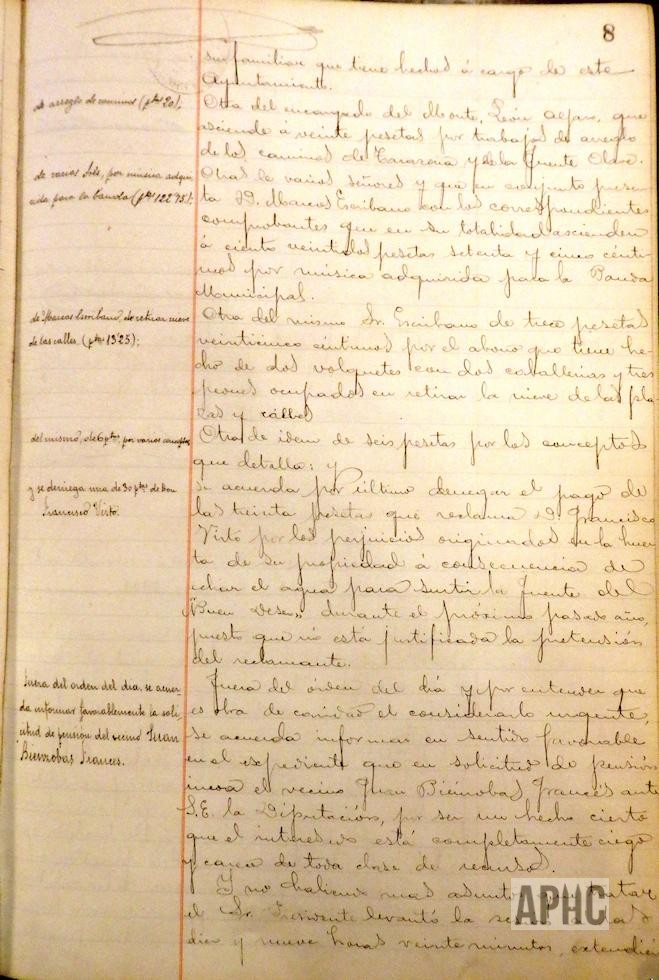 8
su familiar que tiene hechos á cargo de este
Ayuntamiento.
de arreglo de caminos (ptas 20);
Otra del encargado del Monte, León Alfaro, que
asciende á veinte pesetas por trabajos de arreglo
de los caminos de Tarazona y de la Fuente Clave.
de varios Sres, por música adqui
rida para la banda (ptas 122'75);
Otras de varios señores y que en conjunto presen
ta D. Marcos Escribano con los correspondientes
comprobantes que en su totalidad ascienden
á ciento veintidos pesetas setenta y cinco cénti
mos por música adquirida para la Banda
Municipal.
de Marcos Escribano, de retirar nieve
de las calles. (ptas 13'25);
Otra del mismo Sr. Escribano de trece pesetas
veinticinco céntimos por el abono que tiene he
cho de dos volquetes con dos caballerias y tres
peones ocupados en retirar la nieve de las pla
zas y calles
del mismo, de 6 ptas. por varios conceptos,
Otra de idem de seis pesetas por los conceptos
que detalla; y
y se deniega una de 30 ptas. de Don
Francisco Virto.
se acuerda por último denegar el pago de
las treinta pesetas que reclama D. Francisco
Virto por los perjuicios originados en la huer
ta de su propiedad á consecuencia de
echar el agua para surtir la fuente del
"Buen Deseo" durante el próximo pasado año,
puesto que no está justificada la pretensión
del reclamante.
Fuera del orden del dia, se acuer
da informar favorablemente la soli
citud de pensión del vecino Juan
Bienzobas Frances.
Fuera del órden del día y por entender que
es obra de caridad el considerarlo urgente,
se acuerda informar en sentido favorable
en el expediente que en solicitud de pensión
incoa el vecino Juan Bienzobas Francés ante
S.E. la Diputación, por ser un hecho cierto
que el interesado está completamente ciego
y carece de toda clase de recursos.
Y no habiendo mas asuntos que tratar
el Sr. Presidente levantó la sesión á las
diez y nueve horas veinte minutos, extendién
APHC